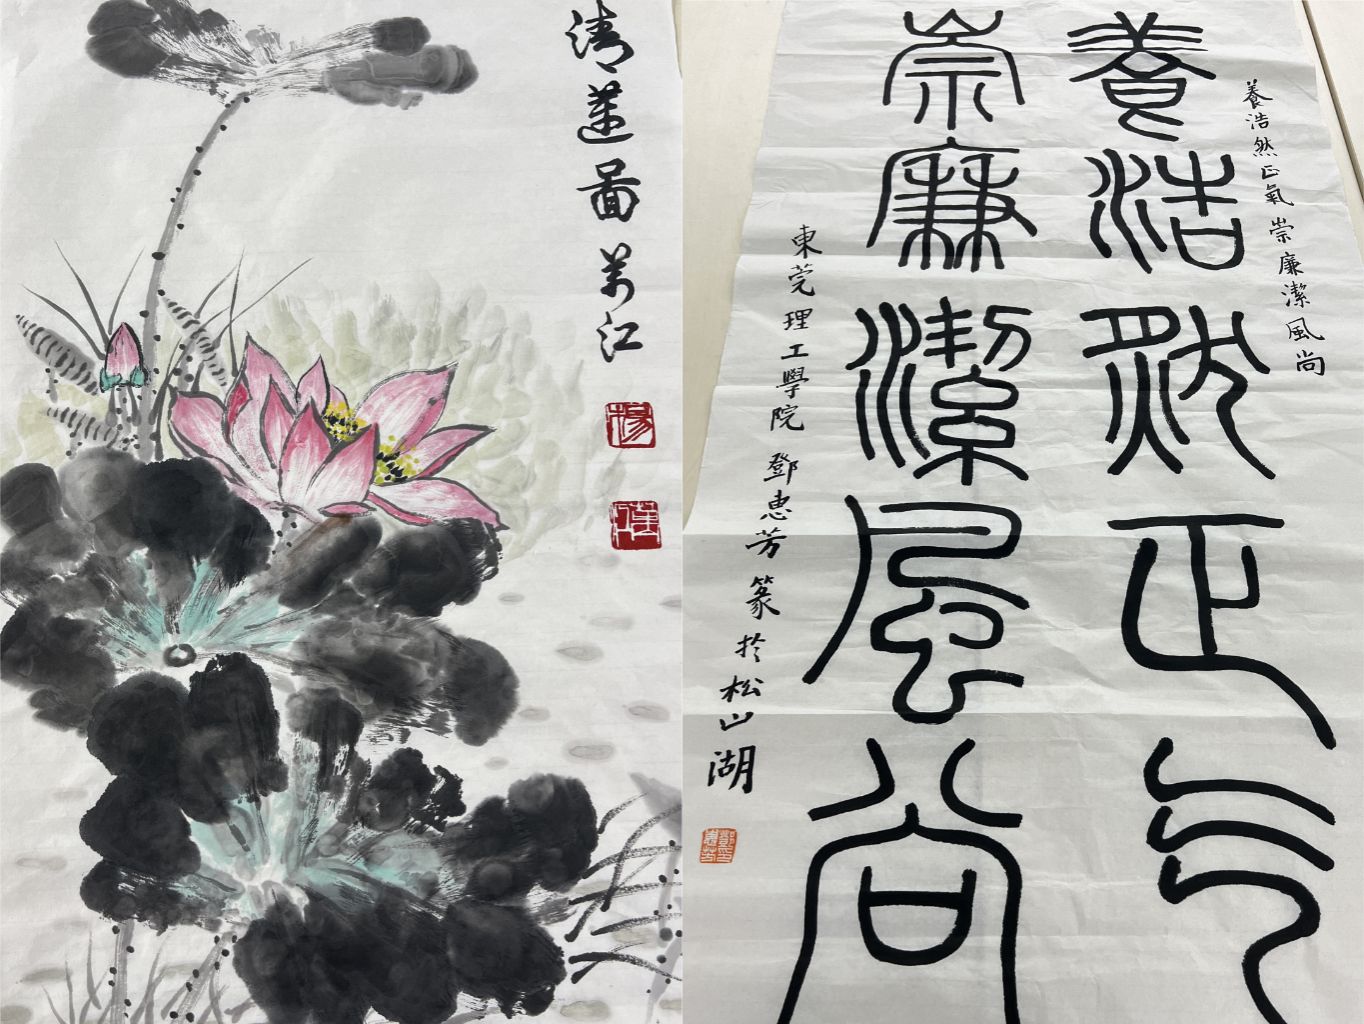 清蓮啚 江
楊
養浩然正氣 崇廉潔風尚
養浩然正气
崇廉潔風尚
東莞理工學院 鄧惠芳 篆於松山湖
鄧惠芳印